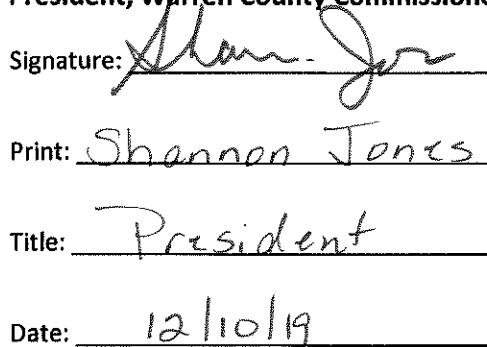 President, Warren County Commissione
Signature: Shan. Jon
Print: Shannon Jones
Title: President
Date: 12/10/19